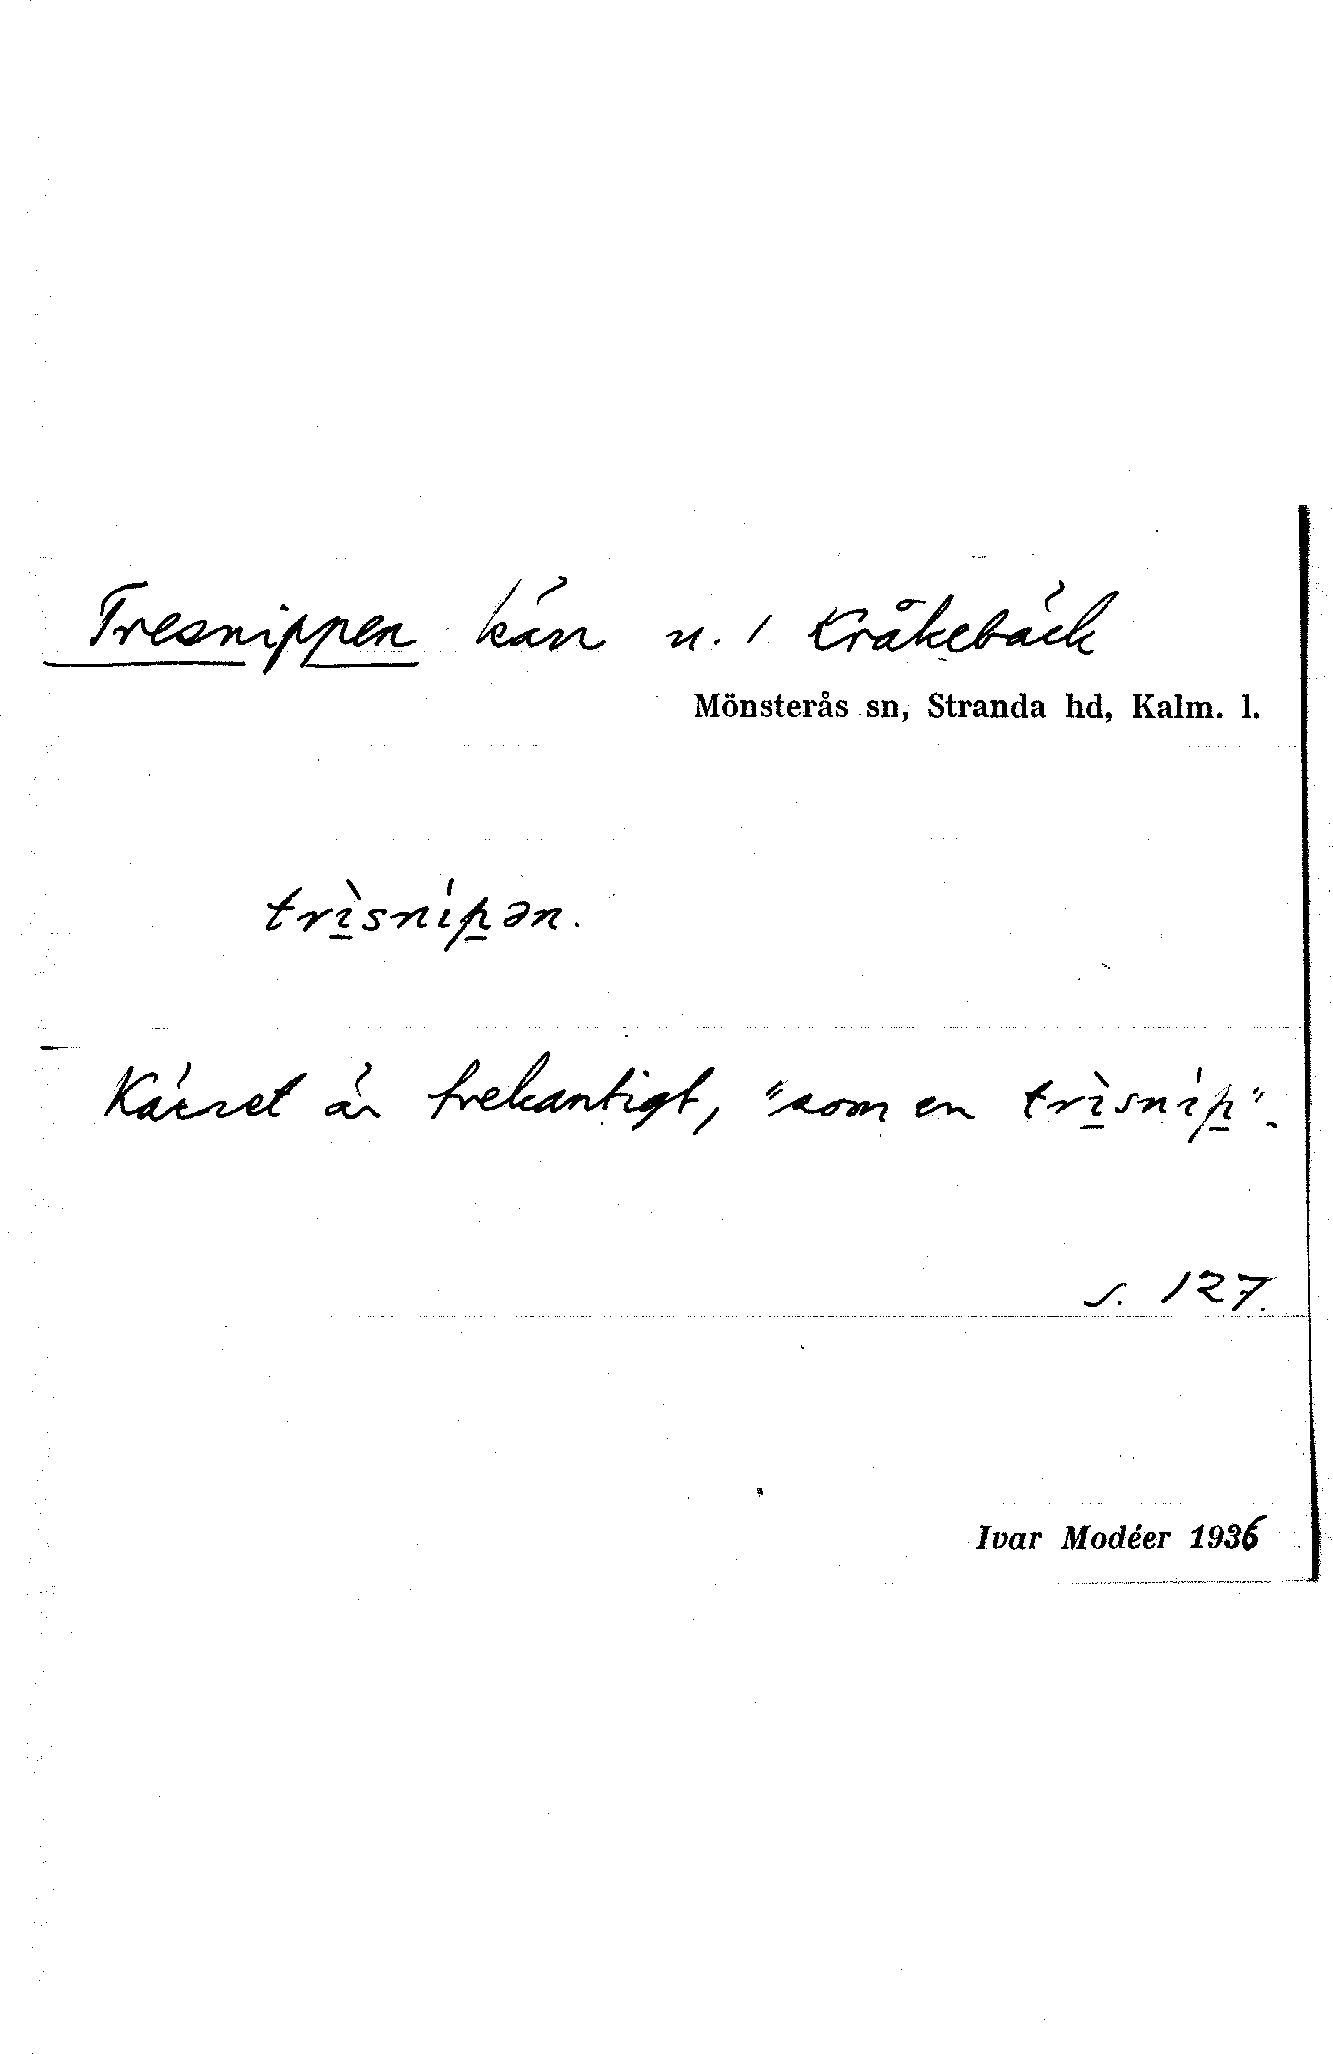 Tresnippen kärr n. 1 Kråkebäck
Mönsterås sn, Stranda hd, Kalm. l.
trı̱̀snıṕ̱ən.
Kärret är trekantigt, "som en trı̱̀snıṕ̱".
s. 127.
Ivar Modéer 1936